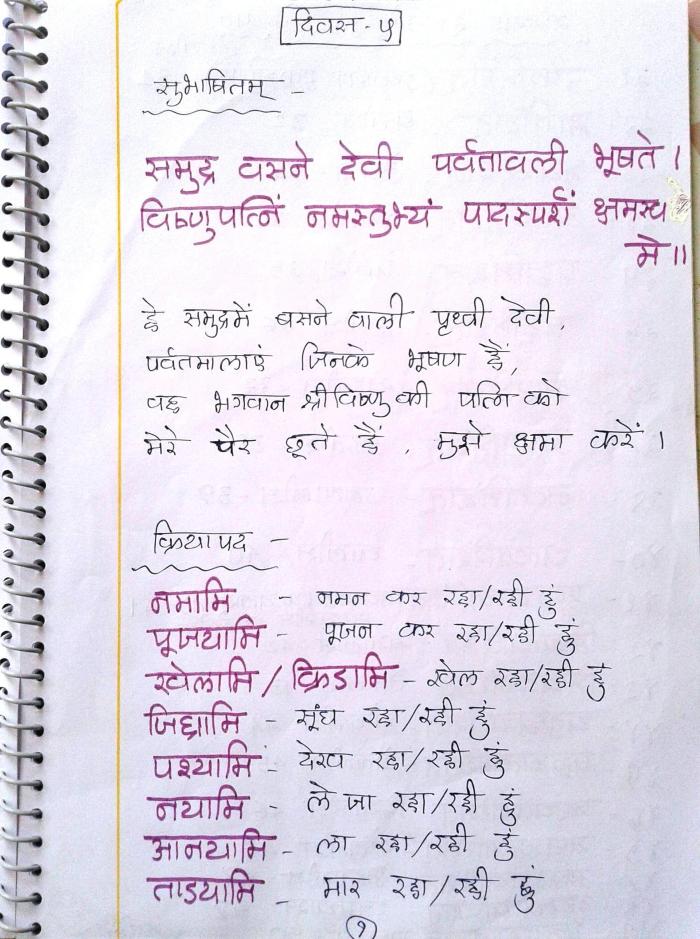 दिवस - ५
सुभाषितम् -
समुद्र वसने देवी पर्वतावली भूषते ।
विष्णुपत्निं नमस्तुभ्यं पादस्पर्शं क्षमस्व
मे ॥
हे समुद्रमें बसने वाली पृथ्वी देवी,
पर्वतमालाएं जिनके भूषण हैं,
वह भगवान श्रीविष्णु की पत्नि को
मेरे पैर छूते हैं, मुझे क्षमा करें ।
क्रियापद -
नमामि - नमन कर रहा/रही हुं
पूजयामि - पूजन कर रहा/रही हुं
खेलामि / क्रिडामि - खेल रहा/रही हुं
जिघ्रामि - सूंघ रहा/रही हुं
पश्यामि - देख रहा/रही हुं
नयामि - ले जा रहा/रही हुं
आनयामि - ला रहा/रही हुं
ताडयामि - मार रहा/रही हुं
१